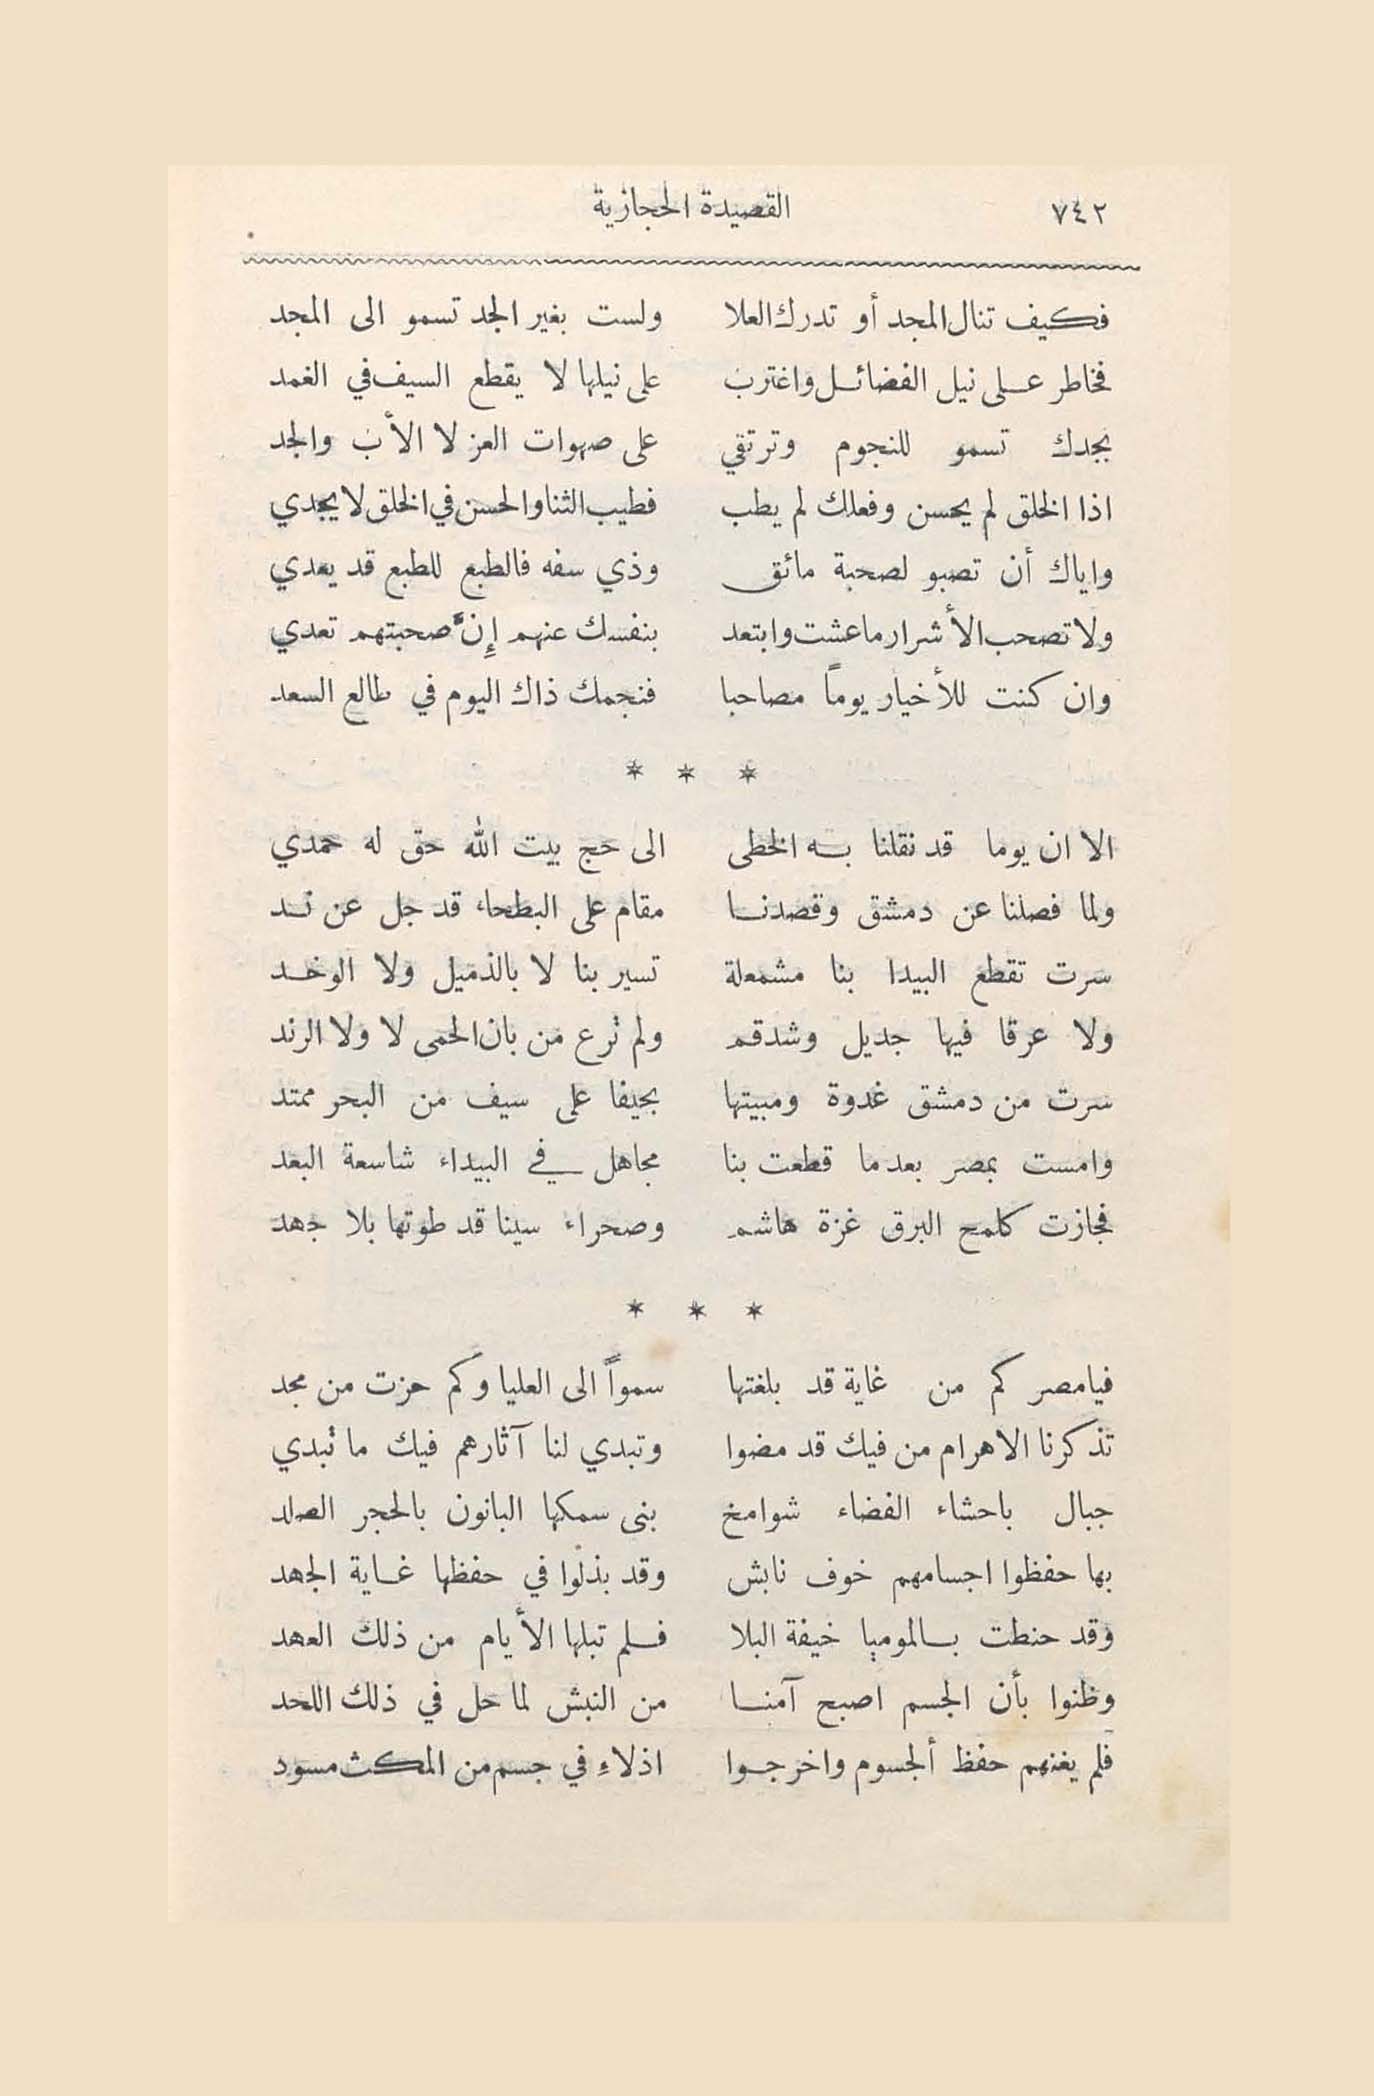 ٧٤٢ القصيدة الحجازية
فكيف تنال المجد أو تدرك العلا ولست بغير الجد تسمو الى المجد
فخاطر على نيل الفضائل واغترب على نيلها لا يقطع السيف في الغمد
بجدك تسمو للنجوم وترتقي على صهوات العز لا الأب والجد
اذا الخلق لم يحسن وفعلك لم يطب فطيب الثنا والحسن في الخلق لا يجدي
واياك أن تصبو لصحبة مائق وذي سفه فالطبع للطبع قد يعدي
ولا تصحب الأشرار ما عشت وابتعد بنفسك عنهم إِنَّ صحبتهم تعدي
وان كنت للأخيار يوماً مصاحبا فنجمك ذاك اليوم في طالع السعد
* * *
الا ان يوما قد نقلنا به الخطى الى حج بيت الله حق له حمدي
ولما فصلنا عن دمشق وقصدنا مقام على البطحاء قد جل عن ند
سرت تقطع البيدا بنا مشمعلة تسير بنا لا بالذميل ولا الوخد
ولا عرقا فيها جديل وشدقم ولم ترع من بان الحمى لا ولا الرند
سرت من دمشق غدوة ومبيتها بحيفا على سيف من البحر ممتد
وامست بمصر بعد ما قطعت بنا مجاهل في البيداء شاسعة البعد
فجازت كلمح البرق غزة هاشم وصحراء سينا قد طوتها بلا جهد
* * *
فيا مصر كم من غاية قد بلغتها سمواً الى العليا وكم حزت من مجد
تذكرنا الاهرام من فيك قد مضوا وتبدي لنا آثارهم فيك ما تبدي
جبال باحشاء الفضاء شوامخ بنى سمكها البانون بالحجر الصلد
بها حفظوا اجسامهم خوف نابش وقد بذلوا في حفظها غاية الجهد
وقد حنطت بالموميا خيفة البلا فلم تبلها الأيام من ذلك العهد
وظنوا بأن الجسم اصبح آمنا من النبش لما حل في ذلك اللحد
فلم يغنهم حفظ ألجسوم واخرجوا اذلاءِ في جسم من المكث مسود